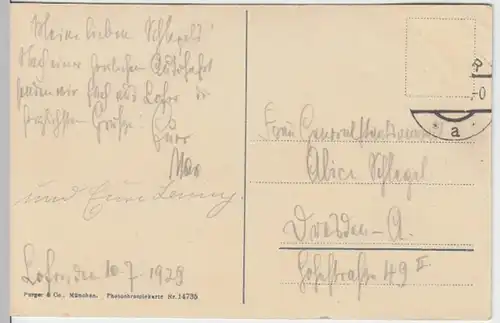 Meine lieben Schlegels!
Nach einer herrlichen Autofahrt
senden wir Euch aus Lofer die
herzlichsten Grüße! Euer
Max
und Eure Lenny.
Lofer, den 10.7.1929
Purger & Co., München. Photochromiekarte Nr. 14735
a
Frau
Alice Schlegel
Dresden-A.
Hohestraße 49 II